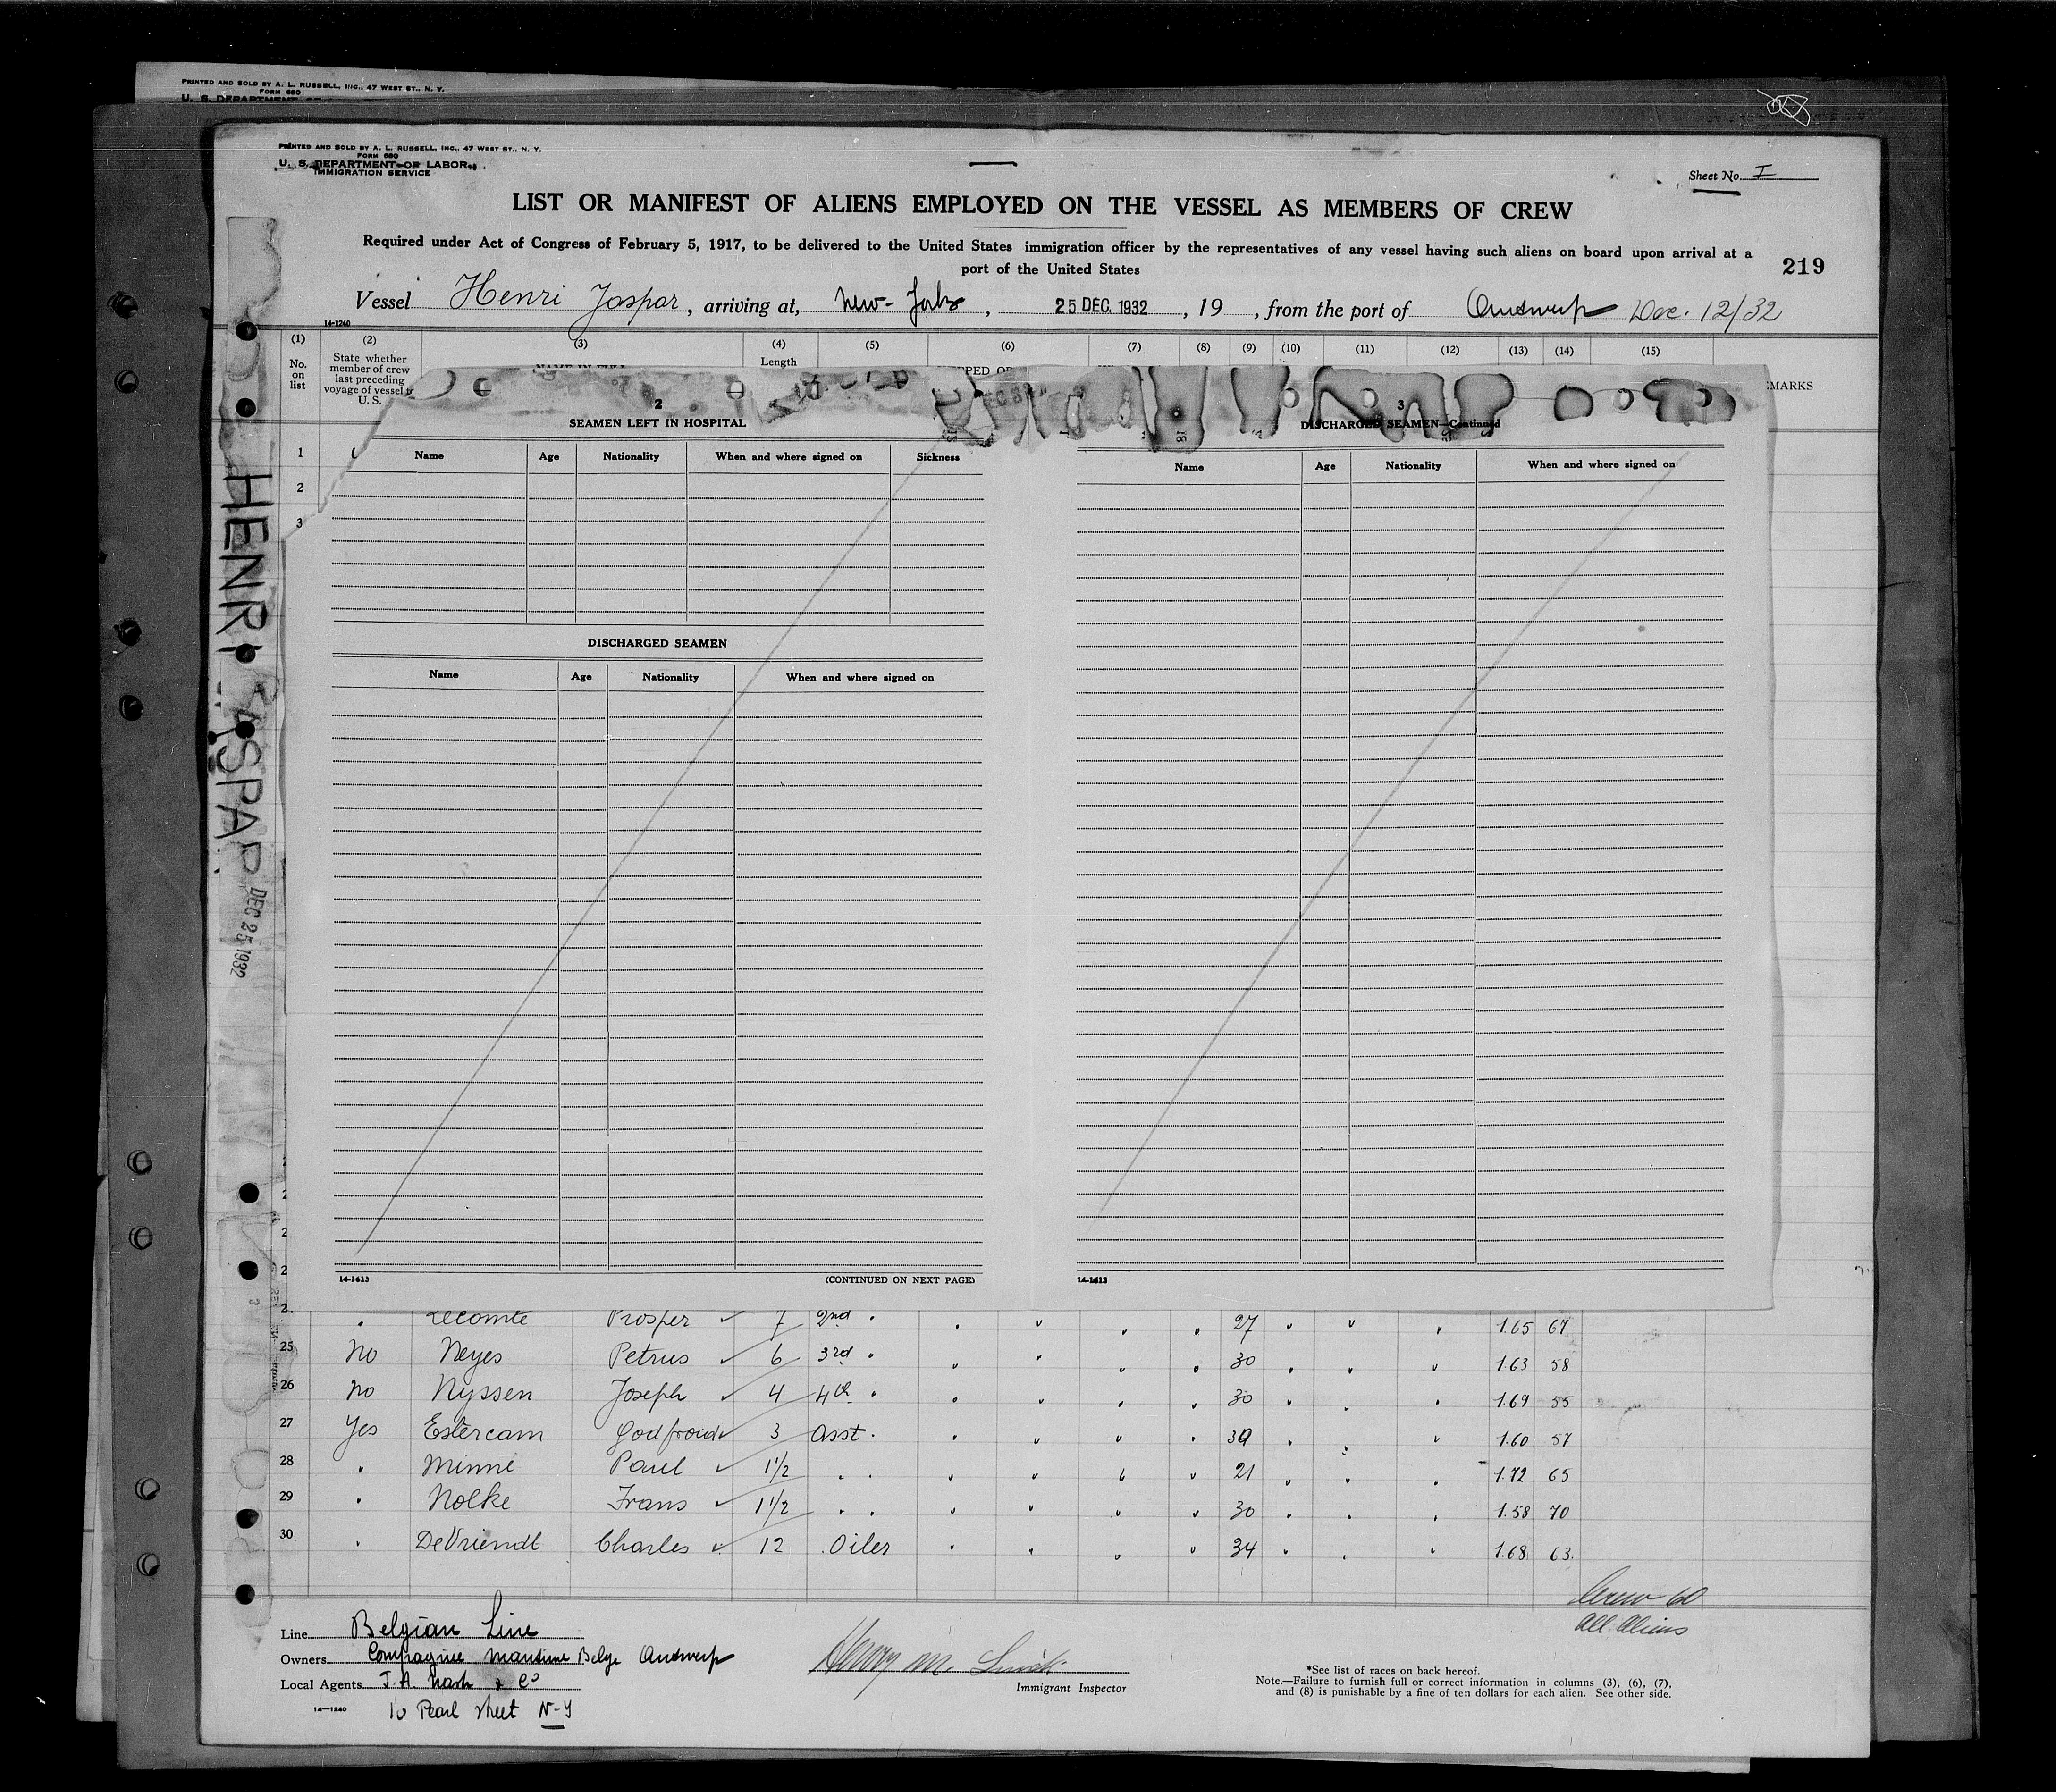 PRINTED AND SOLD BY A. L. RUSSELL, INC., 47 WEST ST., N. Y.
FORM 680
U. S. DEPARTMENT OF
PRINTED AND SOLD BY A. L. RUSSELL, INC., 47 WEST ST., N. Y.
FORM 680
U. S. DEPARTMENT OF LABOR
IMMIGRATION SERVICE
Sheet No. I
LIST OR MANIFEST OF ALIENS EMPLOYED ON THE VESSEL AS MEMBERS OF CREW
Required under Act of Congress of February 5, 1917, to be delivered to the United States immigration officer by the representatives of any vessel having such aliens on board upon arrival at a
port of the United States
219
Vessel Henri Jaspar, arriving at, New-York, 25 DEC. 1932, 19 , from the port of Antwerp Dec. 12/32
14-1240
(1) (2) (3) (4) (5) (6) (7) (8) (9) (10) (11) (12) (13) (14) (15)
No. on list
State whether member of crew last preceding voyage of vessel to U. S.
Length
MARKS
1
2
3
HENRI JASPAR DEC 25 1932
2
SEAMEN LEFT IN HOSPITAL
Name Age Nationality When and where signed on Sickness
DISCHARGED SEAMEN
Name Age Nationality When and where signed on
14-1613 (CONTINUED ON NEXT PAGE)
3
DISCHARGED SEAMEN—Continued
Name Age Nationality When and where signed on
14-1613
" Lecomte Prosper 7 2nd " " " " " 27 " " " 1.65 67
25 No Neyes Petrus 6 3rd " " " " " 30 " " " 1.63 58
26 No Nyssen Joseph 4 4th " " " " " 30 " " " 1.69 55
27 Yes Estercam Godfroid 3 Asst. " " " " 39 " " " 1.60 57
28 " Minne Paul 1 1/2 " " " " " " 21 " " " 1.72 65
29 " Nolke Frans 1 1/2 " " " " " " 30 " " " 1.58 70
30 " DeVriendt Charles 12 Oiler " " " " 34 " " " 1.68 63
Crew 60
All Aliens
Line Belgian Line
Owners Compagnie Maritime Belge Antwerp
Local Agents J. A. Nash & Co
10 Pearl Street N-Y
14—1240
Henry M.
Immigrant Inspector
*See list of races on back hereof.
Note.—Failure to furnish full or correct information in columns (3), (6), (7),
and (8) is punishable by a fine of ten dollars for each alien. See other side.